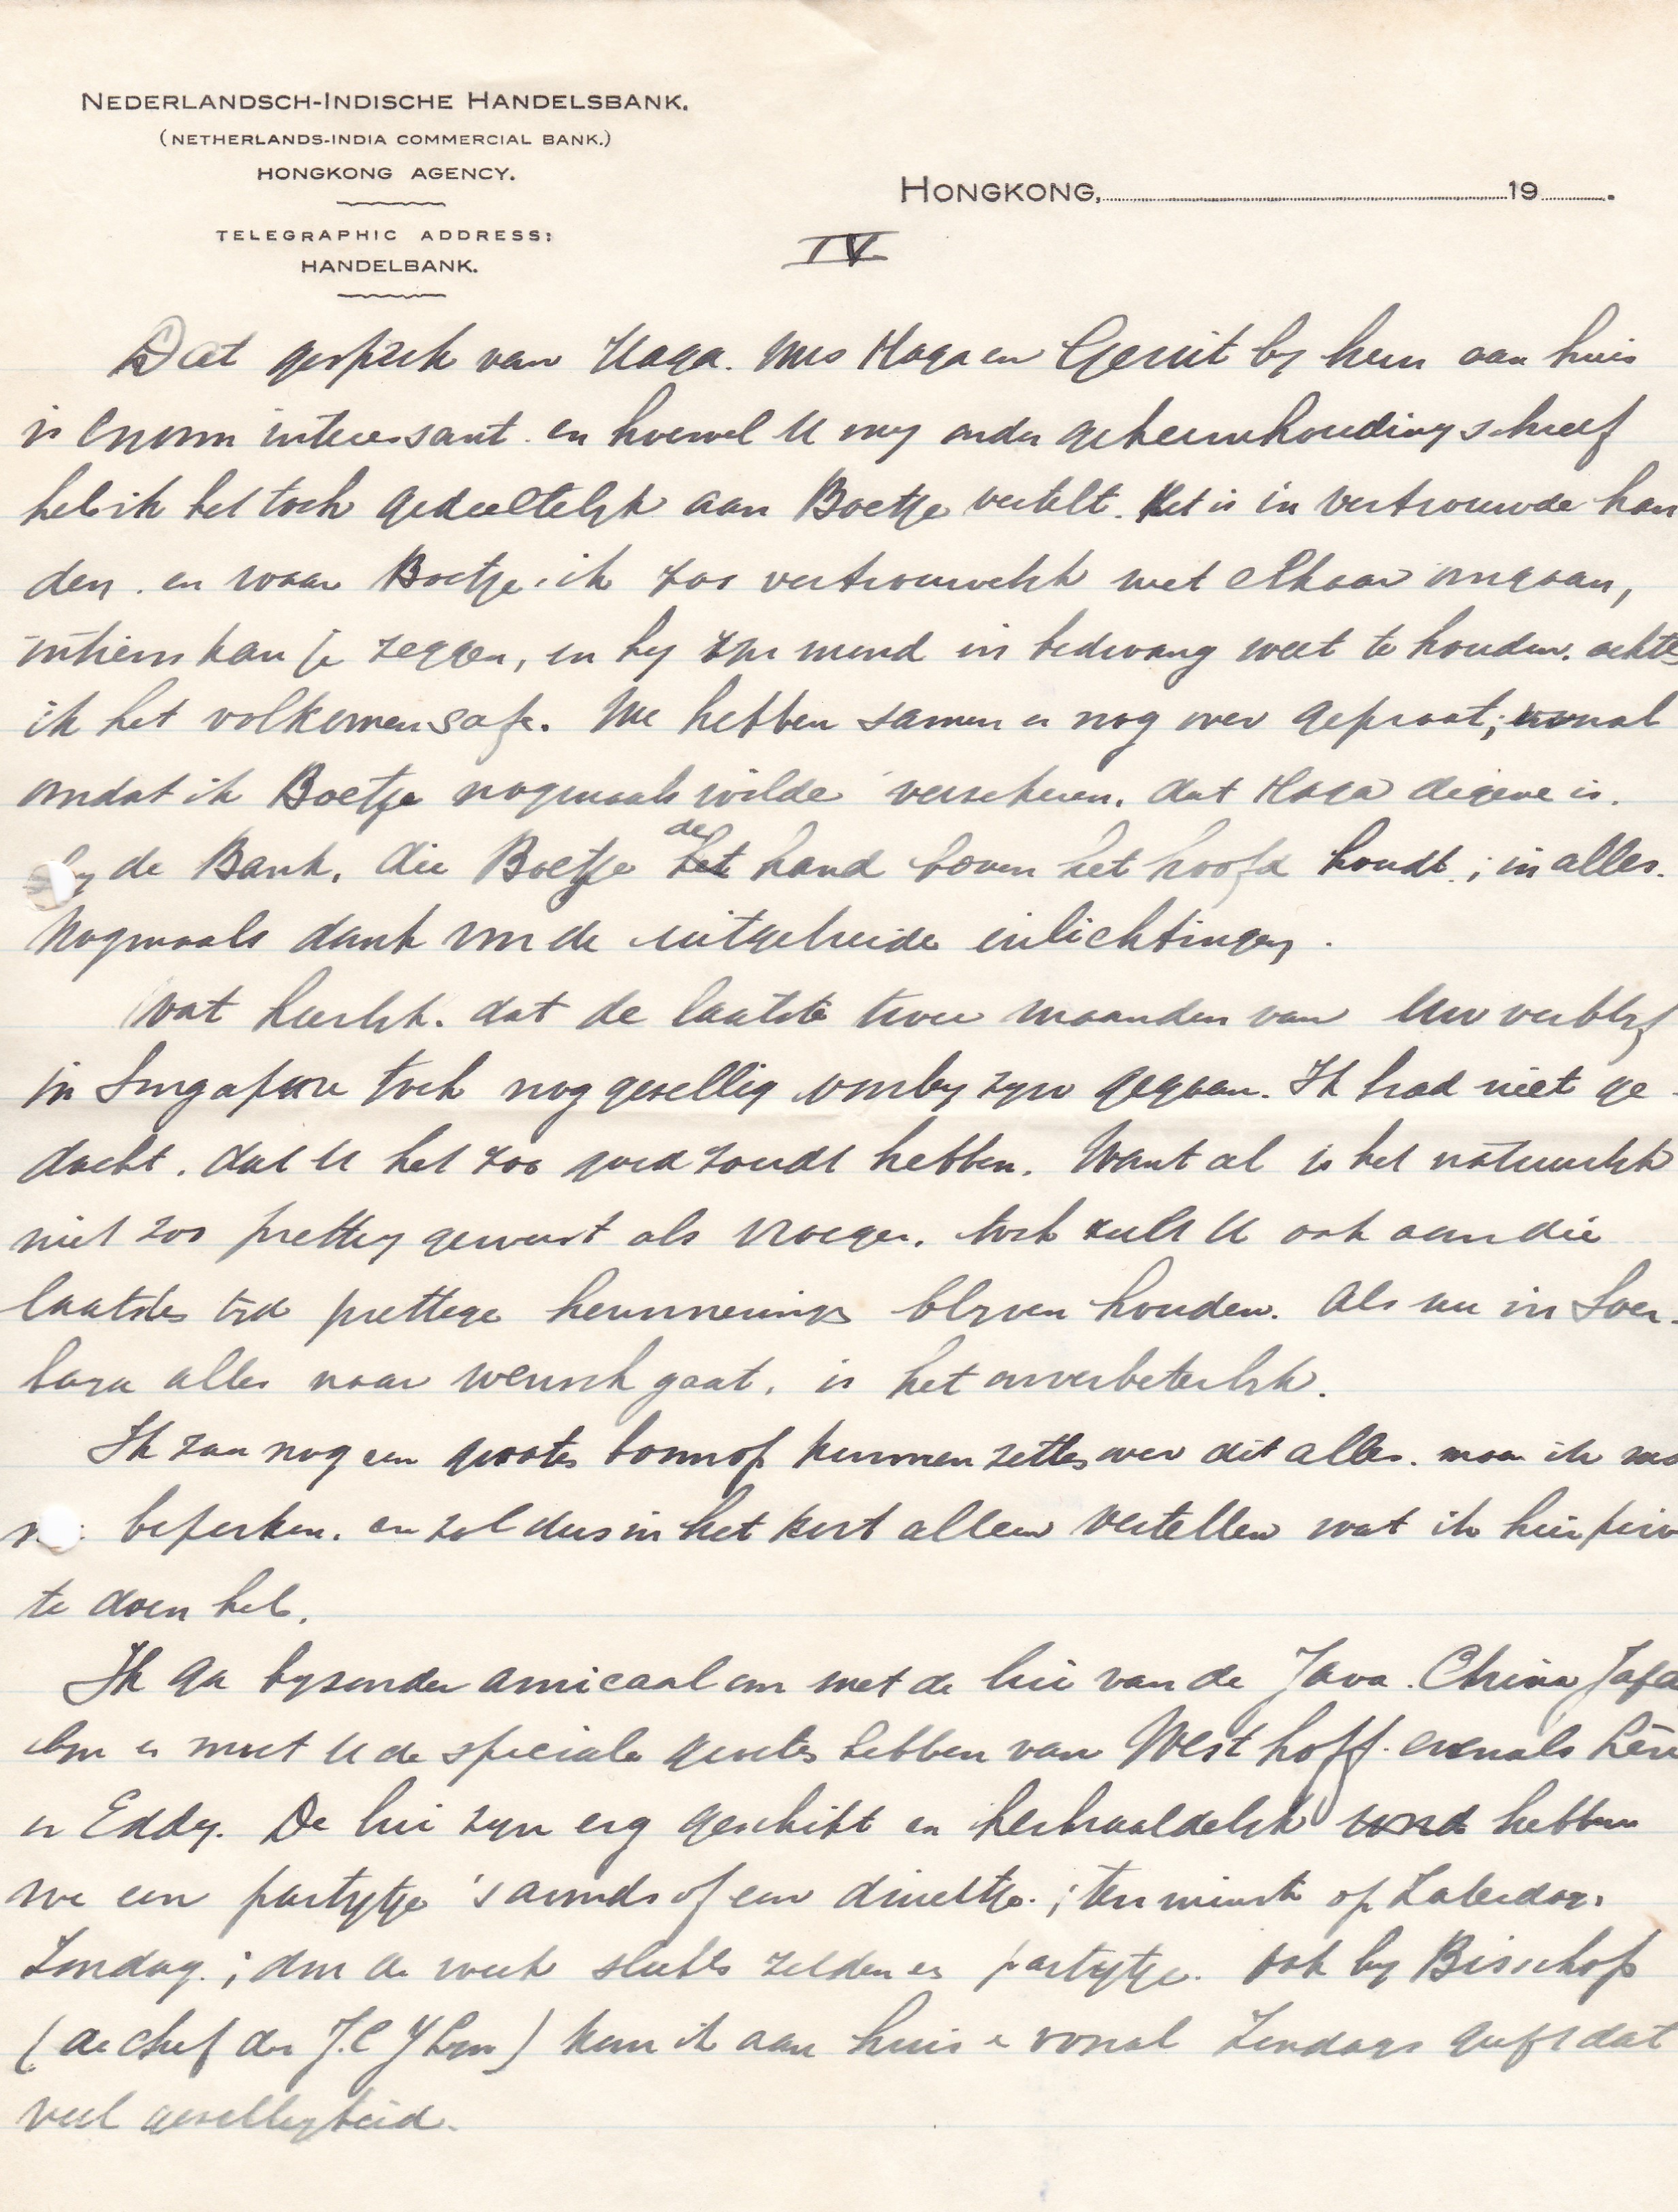 NEDERLANDSCH-INDISCHE HANDELSBANK.
(NETHERLANDS-INDIA COMMERCIAL BANK.)
HONGKONG AGENCY.
TELEGRAPHIC ADDRESS:
HANDELBANK.
HONGKONG, 19 .
IV
Dat gesprek van Haga. Mrs Haga en Gerrit by hem aan huis
is enorm interessant. en hoewel U my onder geheimhouding schreef
heb ik het toch gedeeltelyk aan Boetje vertelt. Het is in vertrouwde han
den. en waar Boetje. ik zoo vertrouwelyk met elkaar omgaan,
intiem kan je zeggen, en hy zyn mond in bedwang weet te houden. achte
ik het volkomen safe. We hebben samen er nog over gepraat; vooral
omdat ik Boetje nogmaals wilde verzekeren. dat Haga degene is.
by de Bank, die Boetje de hand boven het hoofd houdt.; in alles.
Nogmaals dank voor de uitgebreide inlichtingen.
Wat heerlyk. dat de laatste twee maanden van Uw verblyf
in Singapore toch nog gezellig voorby zyn gegaan. Ik had niet ge-
dacht. dat U het zoo goed zoudt hebben. Want al is het natuurlyk
niet zoo prettig geweest als vroeger. toch zult U ook aan die
laatste tyd prettige herinneringen blyven houden. Als nu in Soer-
baya alles naar wensch gaat. is het onverbeterlyk.
Ik zou nog een groote boom op kunnen zetten over dit alles. maar ik moet
beperken. en zal dus in het kort alleen vertellen wat ik hier privé
te doen heb.
Ik ga byzonder amicaal om met de lui van de Java. China Japan
Lyn en moet U de speciale groeten hebben van Westhoff. evenals
en Eddy. De lui zyn erg geschikt en herhaaldelyk hebben
we een partytje 's avonds of een dineetje.; tenminste op Zaterdag.
Zondag.; door de week slechts zelden een partytje. Ook by Bisschop
(de chef der J.C J Lyn) kom ik aan huis en vooral Zondags geeft dat
veel gezelligheid.